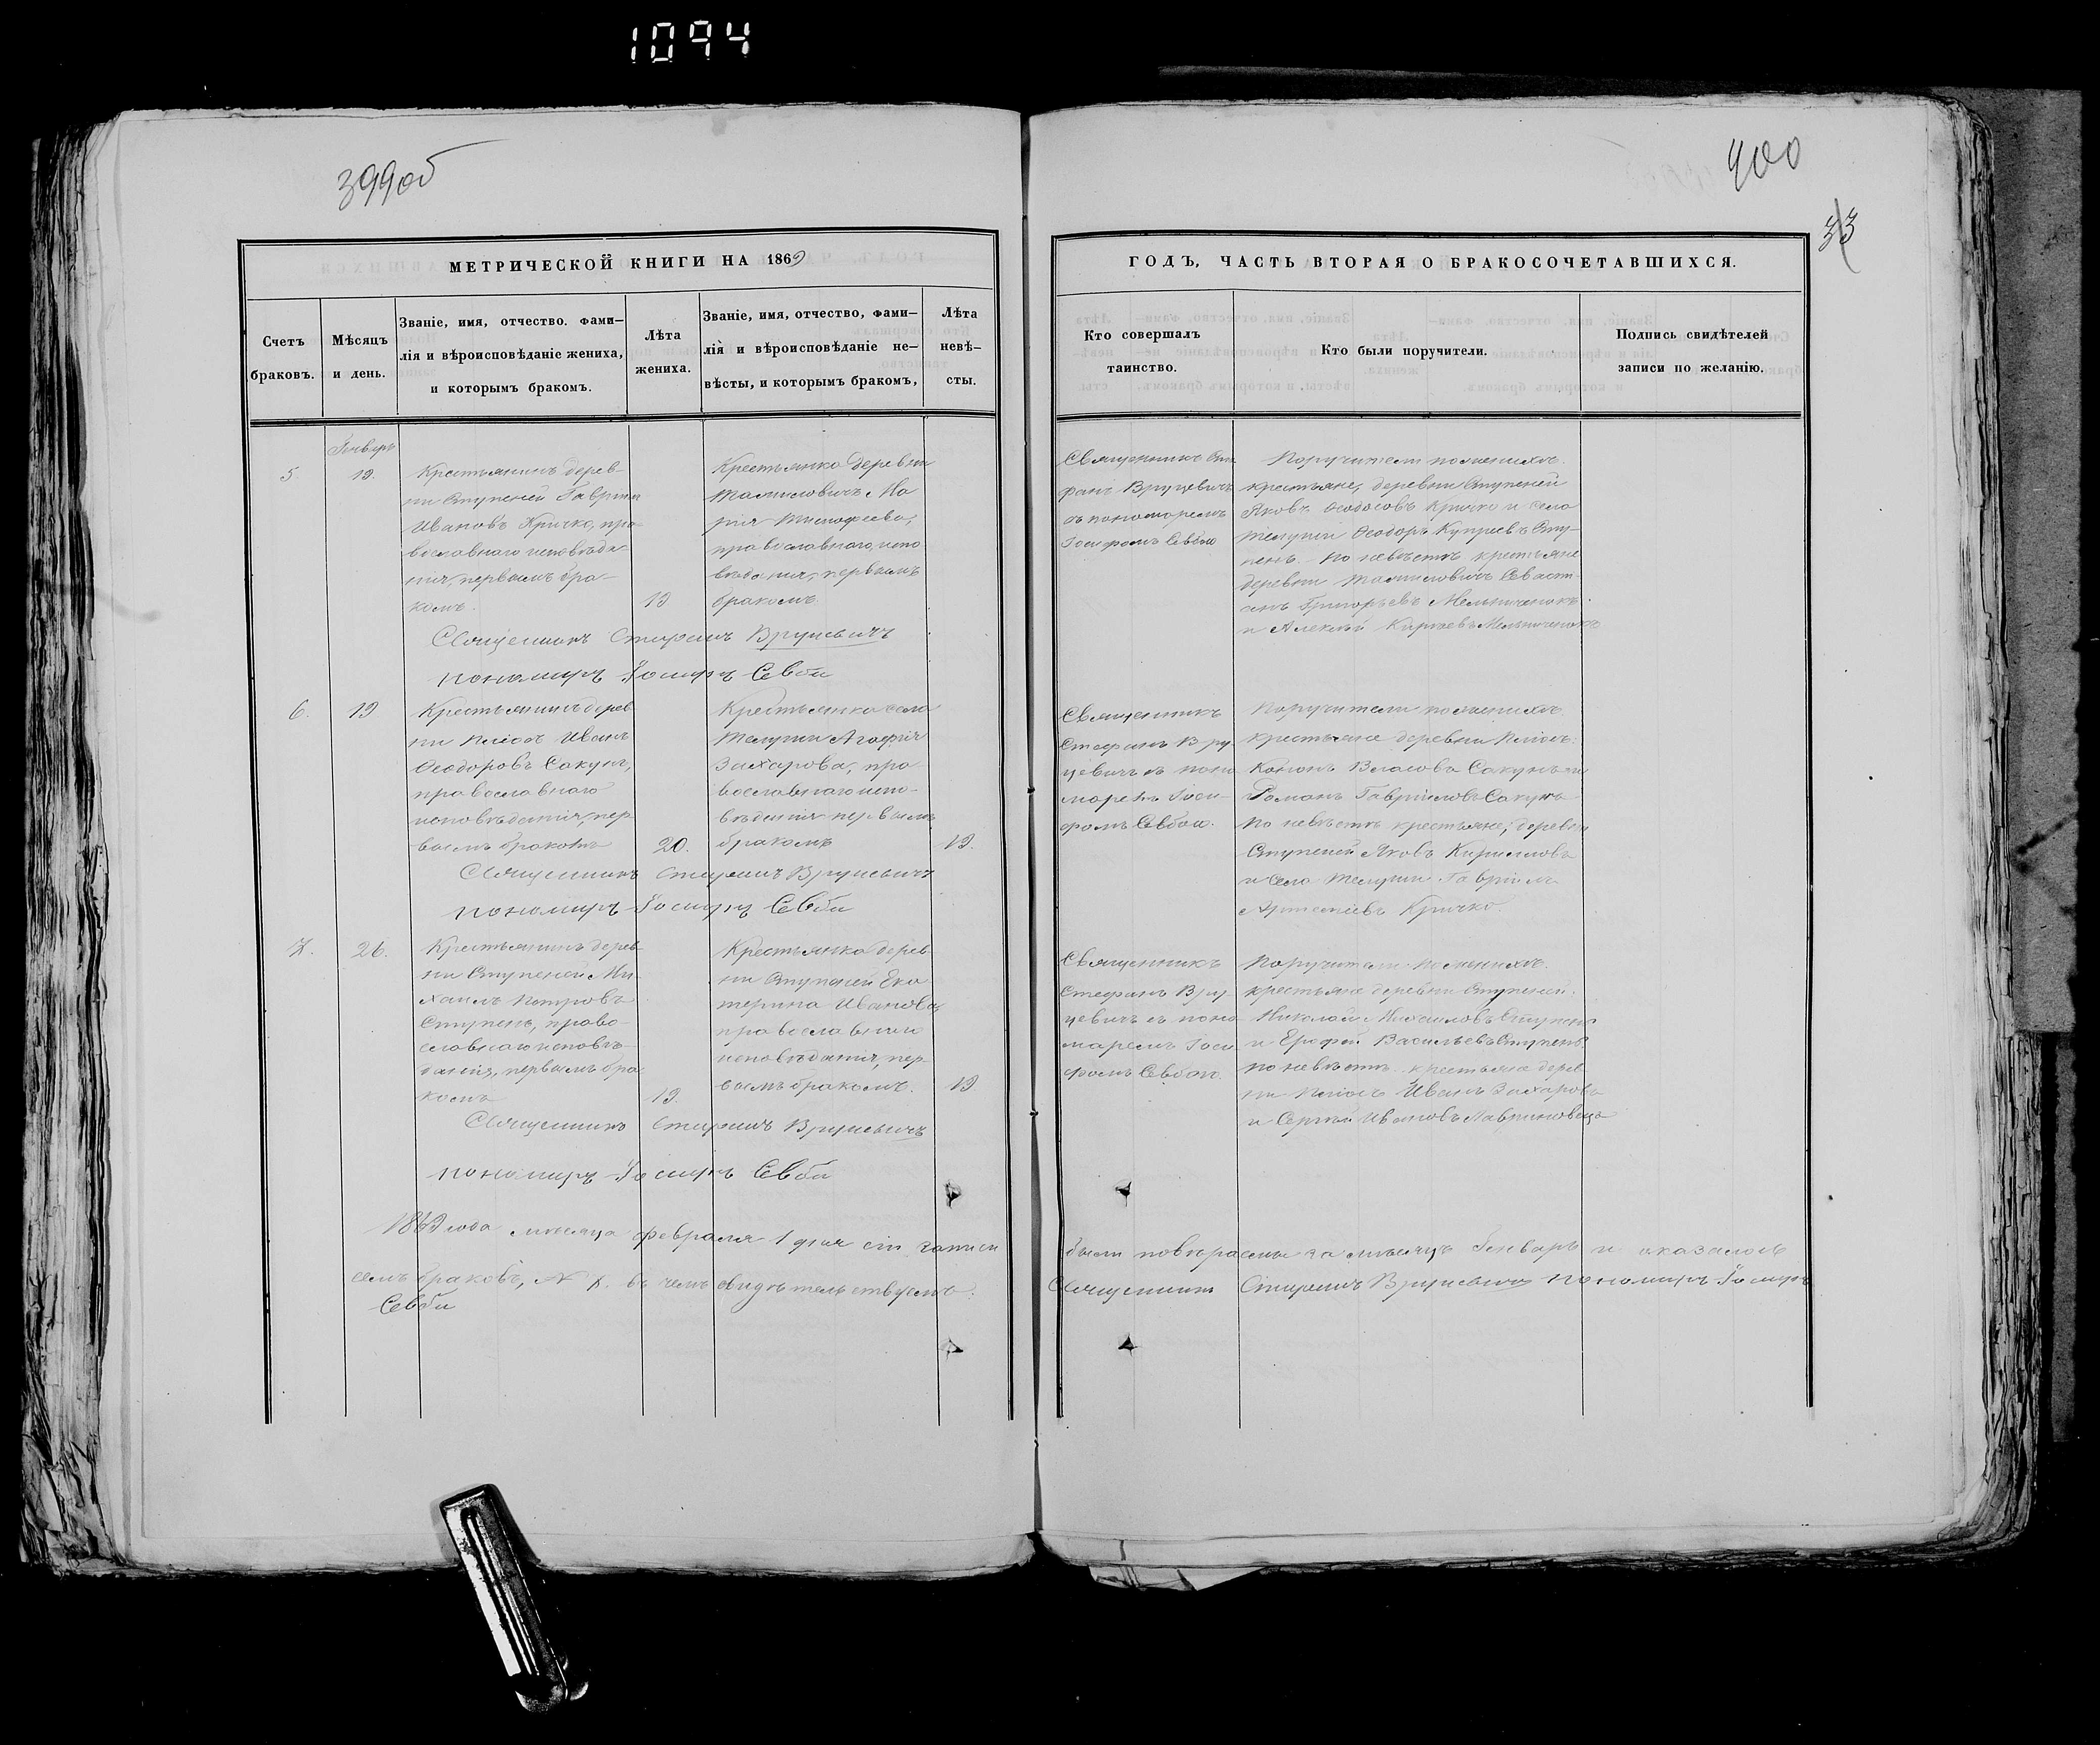 1094
399об
400
33
МЕТРИЧЕСКОЙ КНИГИ НА 1869
ГОДЪ, ЧАСТЬ ВТОРАЯ О БРАКОСОЧЕТАВШИХСЯ.
Счетъ
браковъ.
Мѣсяцъ
и день.
Званіе, имя, отчество. фами-
лія и вѣроисповѣданіе жениха,
и которымъ бракомъ.
Лѣта
жениха.
Званіе, имя, отчество, фами-
лія и вѣроисповѣданіе не-
вѣсты, и которымъ бракомъ,
Лѣта
невѣ-
сты.
Кто совершалъ
таинство.
Кто были поручители.
Подпись свидѣтелей
записи по желанію.
5.
Генварь
19.
Крестьянинъ дерев-
ни Ступеней Гавриил
Ивановъ Кричко, пра-
вославнаго исповѣда-
нія, первымъ бра-
комъ.
19
Крестьянка деревни
Ма
рія Тимофеева,
православнаго испо
вѣданія, первымъ
бракомъ.
Священникъ Сте
фанъ Вруцевичъ
съ пономаремъ
Іосифомъ Севбою
Поручители по женихѣ.
крестьяне, деревни Ступеней
Яковъ Ѳеодосовъ Кричко и села
Ѳеодоръ Купріевъ Сту-
пень. По невѣстѣ крестьяне
деревни Севасти
анъ Григорьевъ Мельниченокъ
и Алексѣй Мельниченокъ
Священникъ Стефанъ Вруцевичъ
пономарь Іосифъ Севби
6.
19
Крестьянинъ дерев
ни Иванъ
Ѳеодоровъ Сакунъ,
православнаго
исповѣданія, пер
вымъ бракомъ
20.
Крестьянка села
Агафія
Захарова, пра
вославнаго испо-
вѣданія первымъ
бракомъ
19.
Священникъ
Стефанъ Вру
цевичъ съ поно
маремъ Іоси-
фомъ Севбою.
Поручители по женихѣ.
крестьяне деревни
Кононъ Власовъ Сакунъ и
Романъ Гавриловъ Сакунъ
По невѣстѣ крестьяне, деревни
Ступеней Яковъ Кирилловъ
и села Гавріилъ
Артемьевъ Кричко.
Священникъ Стефанъ Вруцевичъ
пономарь Іосифъ Севби
7.
26.
Крестьянинъ дерев-
ни Ступеней Ми-
хаилъ Петровъ
Ступень, право-
славнаго исповѣ-
данія, первымъ бра
комъ
19.
Крестьянка дерев-
ни Ступеней Ека
терина Иванова
православнаго
исповѣданія, пер-
вымъ бракомъ.
19
Священникъ
Стефанъ Вру-
цевичъ съ поно
маремъ Іоси
фомъ Севбою.
Поручители по женихѣ.
крестьяне деревни Ступеней.
Николай Михаиловъ Ступень
и Ерофей Васильевъ Ступень
по невѣстѣ крестьяне дерев
ни Иванъ Захаровъ
и Сергѣй Ивановъ
Священникъ Стефанъ Вруцевичъ
пономарь Іосифъ Севби
1869 года мѣсяца февраля 1 дня сіи записи были повѣряемы за мѣсяцъ Генварь и оказалось
семь браковъ, № 7. въ чемъ свидѣтельствуемъ. Священникъ Стефанъ Вруцевичъ пономарь Іосифъ
Севби